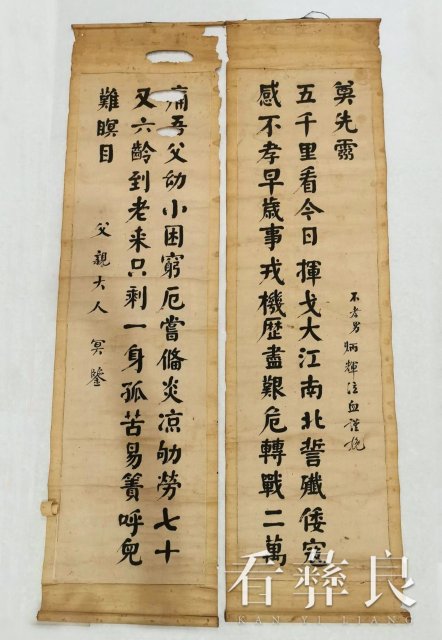 痛吾父幼小困窮厄嘗備炎凉劬勞七十
又六齡到老來只剩一身孤苦易簀呼兒
難瞑目
父親大人 冥鑒
感不孝早歲事戎機歷盡艱危轉戰二萬
五千里看今日揮戈大江南北誓殲倭寇
奠先靈
不孝男炳輝泣血謹輓
看彝良
KAN YI LIANG